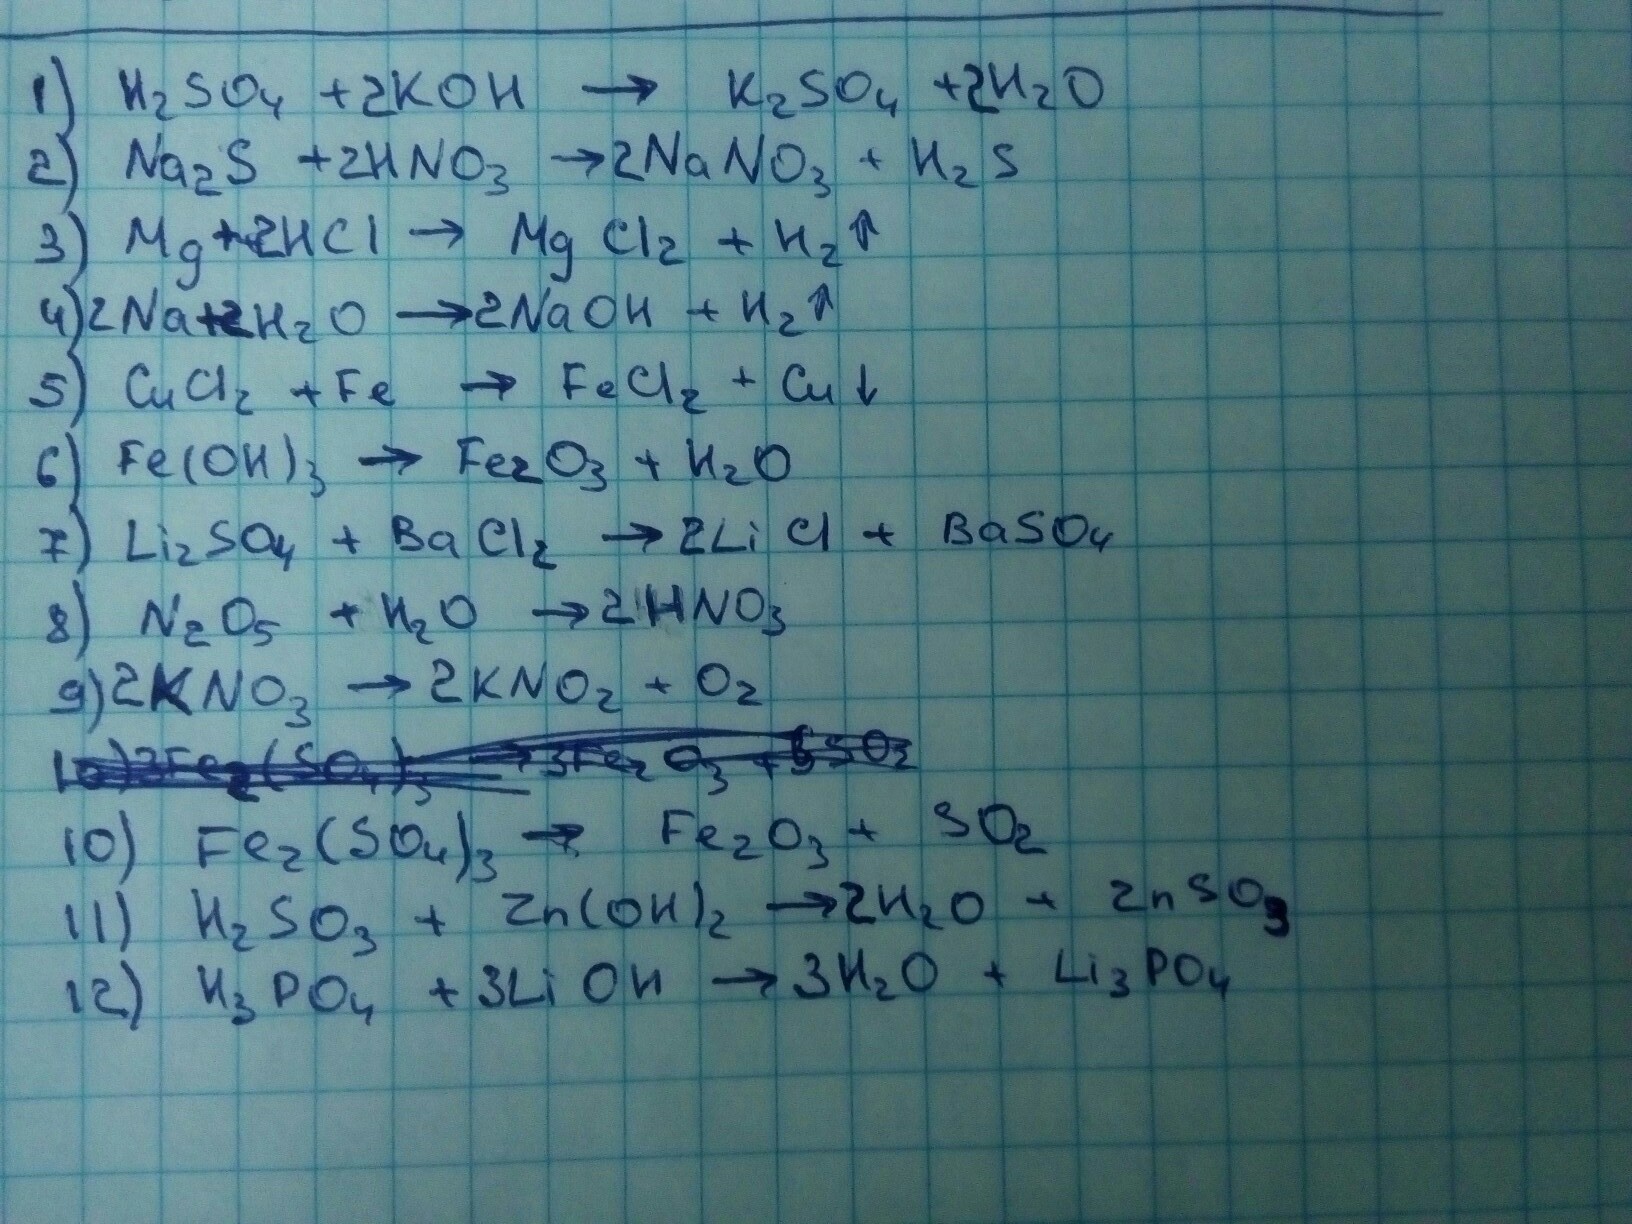 1) H₂SO₄ +2KOH → K₂SO₄ +2H₂O
2) Na₂S +2HNO₃ →2NaNO₃ + H₂S
3) Mg+2HCl → MgCl₂ + H₂↑
4) 2Na+2H₂O →2NaOH + H₂↑
5) CuCl₂ +Fe → FeCl₂ + Cu↓
6) Fe(OH)₃ → Fe₂O₃ + H₂O
7) Li₂SO₄ + BaCl₂ →2LiCl + BaSO₄
8) N₂O₅ + H₂O →2HNO₃
9) 2KNO₃ → 2KNO₂ + O₂
10) Fe₂(SO₄)₃ → Fe₂O₃ + SO₂
11) H₂SO₃ + Zn(OH)₂ →2H₂O + ZnSO₃
12) H₃PO₄ +3LiOH →3H₂O + Li₃PO₄